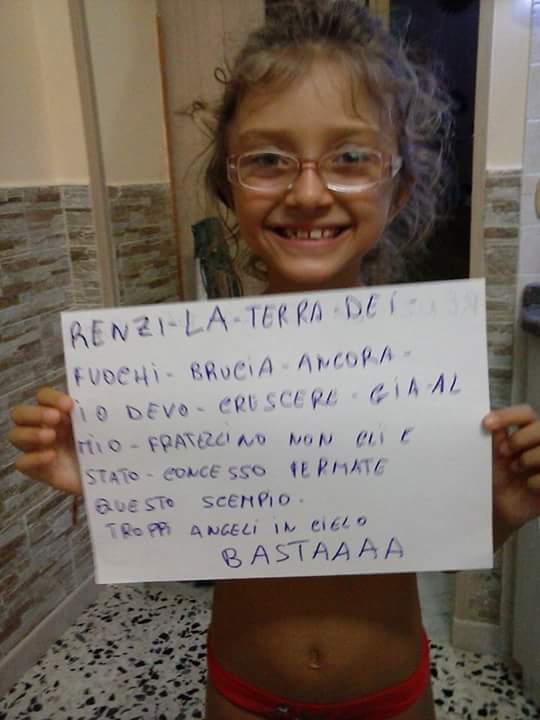 RENZI-LA-TERRA-DEI-
FUOCHI-BRUCIA-ANCORA-
IO DEVO-CRESCERE-GIA-AL
MIO-FRATELLINO NON GLI E
STATO-CONCESSO FERMATE
QUESTO SCEMPIO.
TROPPI ANGELI IN CIELO
BASTAAAA